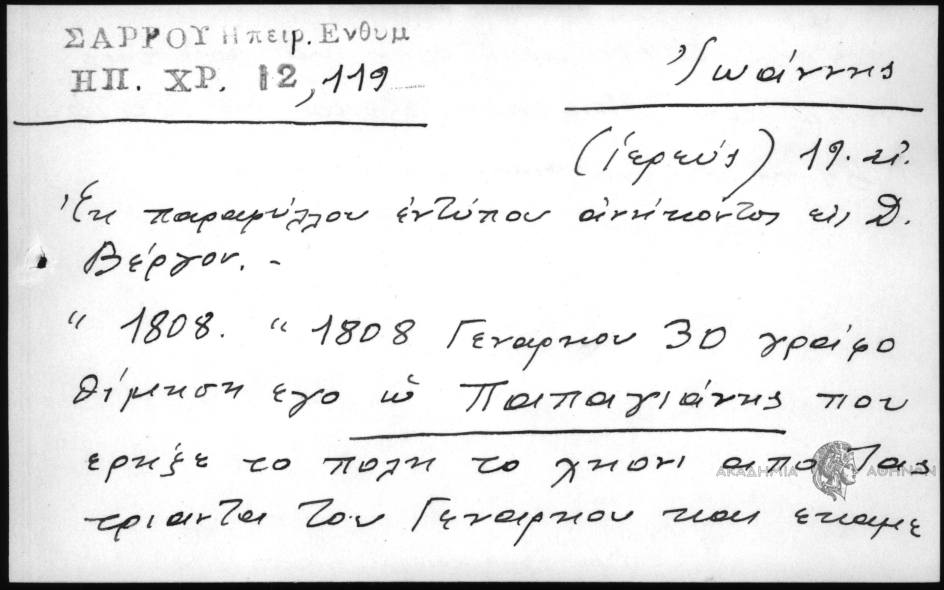 ΣΑΡΡΟΥ Ηπειρ. Ενθυμ
ΗΠ. ΧΡ. 12, 119
Ἰωάννης
(ἱερεύς) 19. αἰ.
Ἐκ παραφύλλου ἐντύπου ἀνήκοντος εἰς Δ.
Βέργον. -
" 1808. " 1808 Γεναρηου 30 γράφο
θίμηση εγο ὡ Παπαγιάνης που
ερηξε το πολη το χηονι απο τας
τριαντα του Γεναρηου και εκαμε
ΑΚΑΔΗΜΙΑ ΑΘΗΝΩΝ